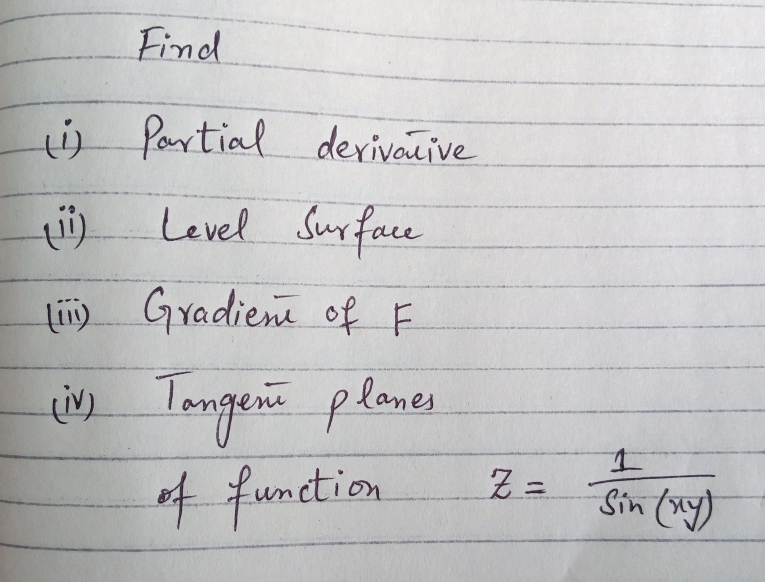 Find
(i) Partial derivative
(ii) Level Surface
(iii) Gradient of F
(iv) Tangent planes
of function z = 1/Sin(xy)